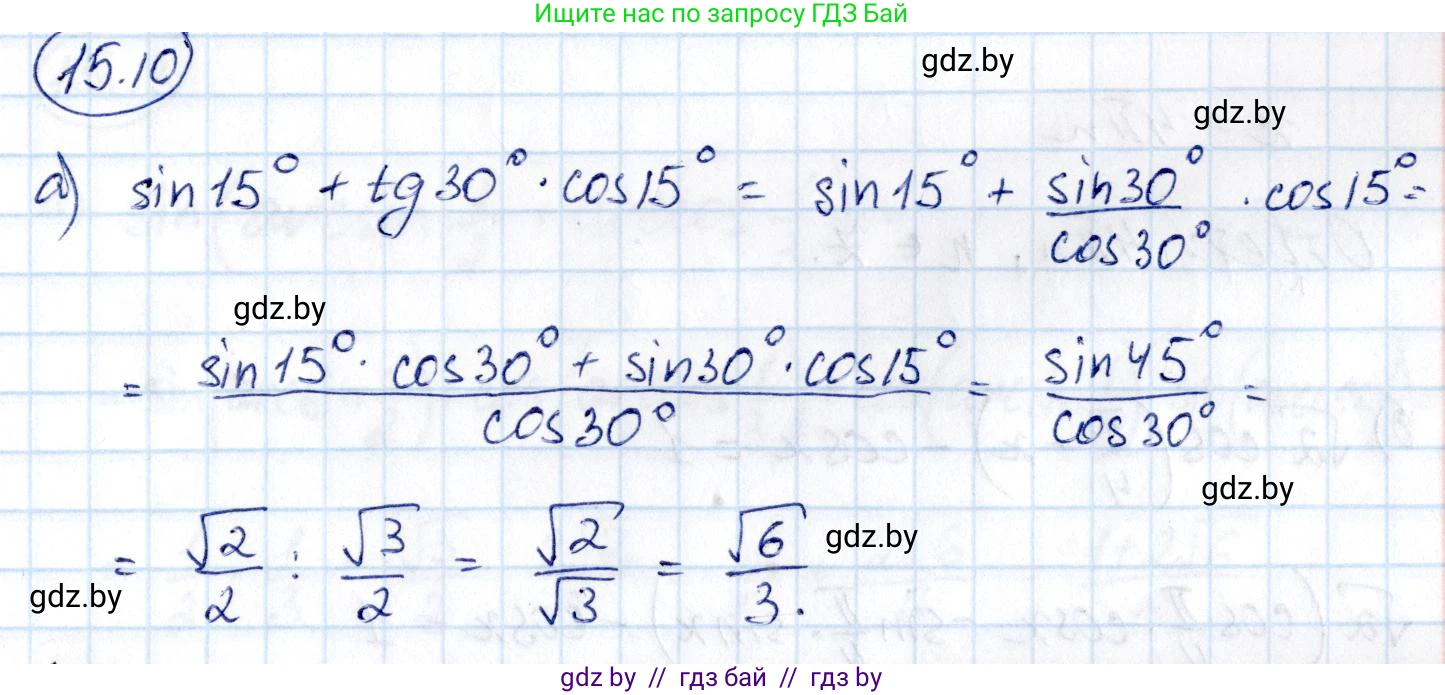 Ищите нас по запросу ГДЗ Бай
15.10
gdz.by
gdz.by
а) sin15° + tg30° · cos15° = sin15° + sin30°/cos30° · cos15° =
gdz.by
= (sin15° · cos30° + sin30° · cos15°)/cos30° = sin45°/cos30° =
gdz.by
= √2/2 : √3/2 = √2/√3 = √6/3.
gdz.by
gdz.by
gdz.by // гдз бай // гдз by